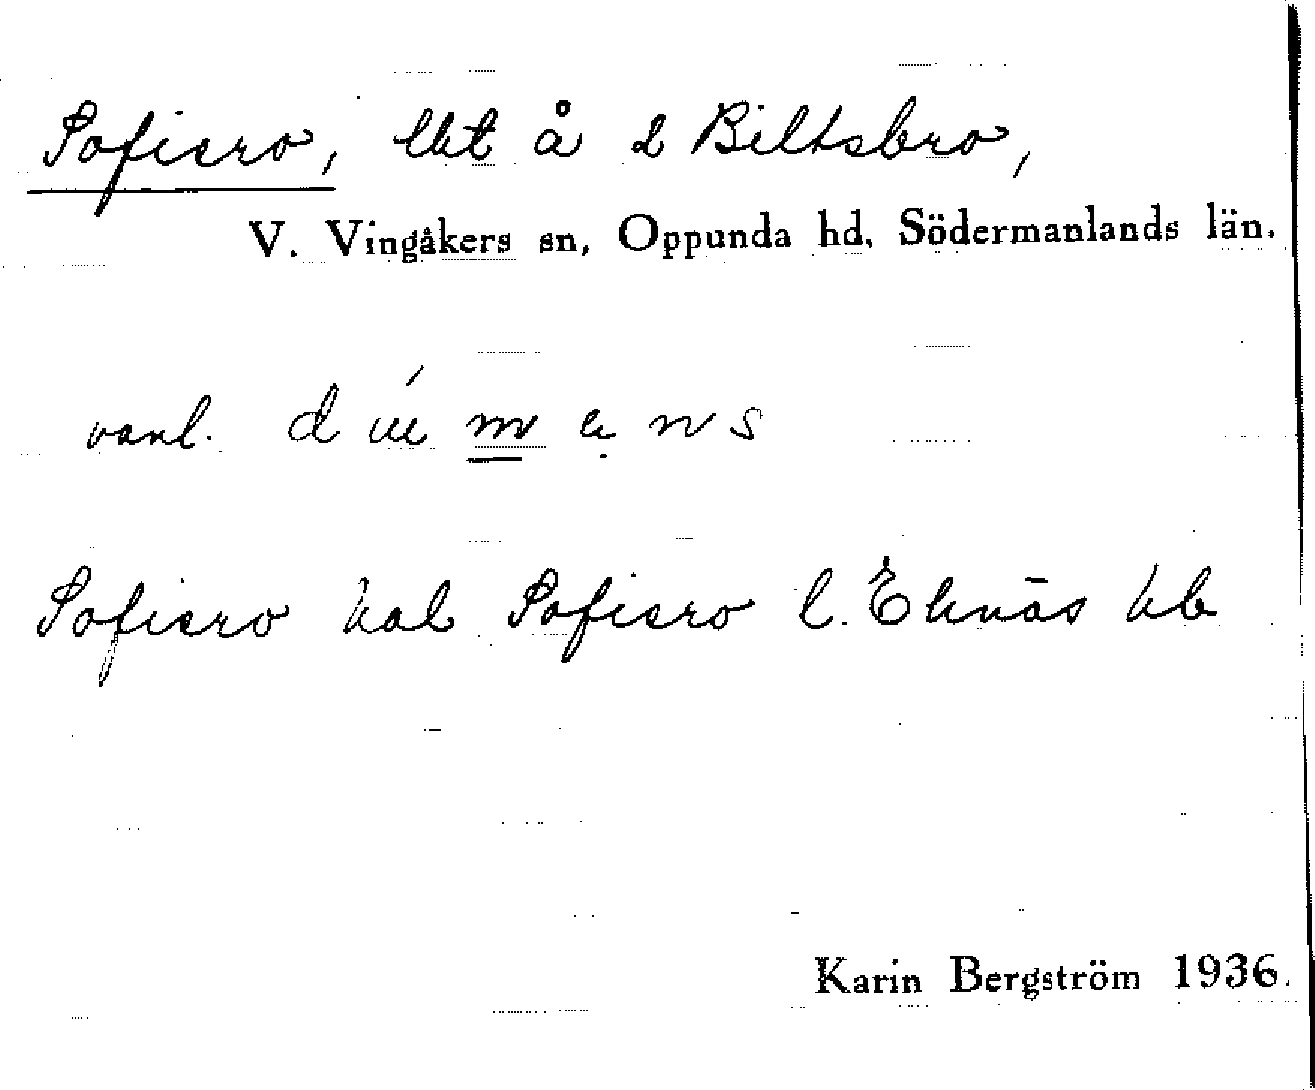 Sofiero, lht å 2 Biltsbro,
V. Vingåkers sn, Oppunda hd, Södermanlands län.
vanl.
Sofiero kal Sofiero l. Eknäs hb
Karin Bergström 1936.